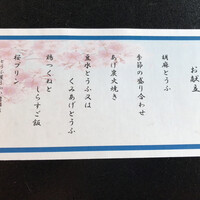 お献立
胡麻とうふ
季節の盛り合わせ
あげ炭火焼き
豆水とうふ又は
くみあげとうふ
鶏つくねと
しらすご飯
桜プリン